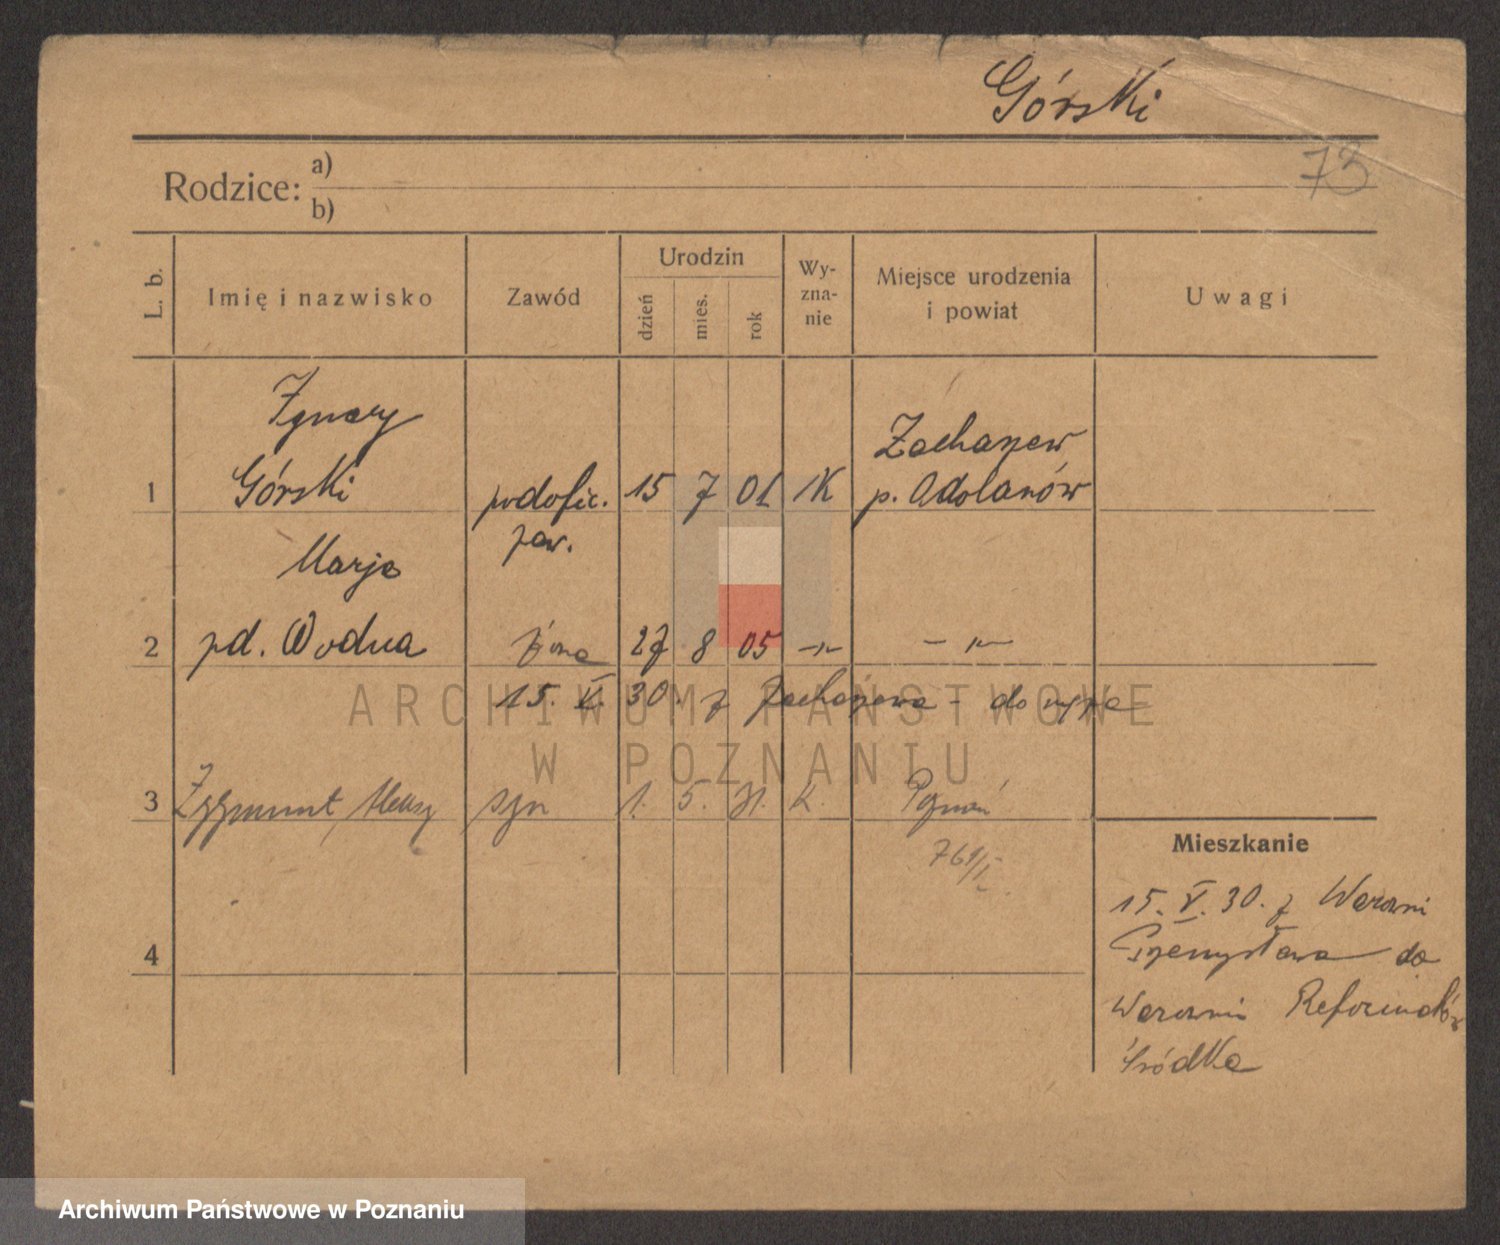 Górski
73
Rodzice: a)
b)
L. b. Imię i nazwisko Zawód Urodzin dzień mies. rok Wy-zna-nie Miejsce urodzenia i powiat Uwagi
Ignacy
Górski
1 podofic. 15 7 01 rK Zacharzew
p. Adolanów
zaw.
Marja
2 pd. Wodna żona 27 8 05 -"- -"-
15. V. 30. z Zacharzewa - do męża
3 Zygmunt, syn 1. 5. 31. k. Poznań
761/I
Mieszkanie
15. V. 30. z Warowni
Przemysława do
Warowni Reformatów
Śródka
4
ARCHIWUM PAŃSTWOWE
W POZNANIU
Archiwum Państwowe w Poznaniu